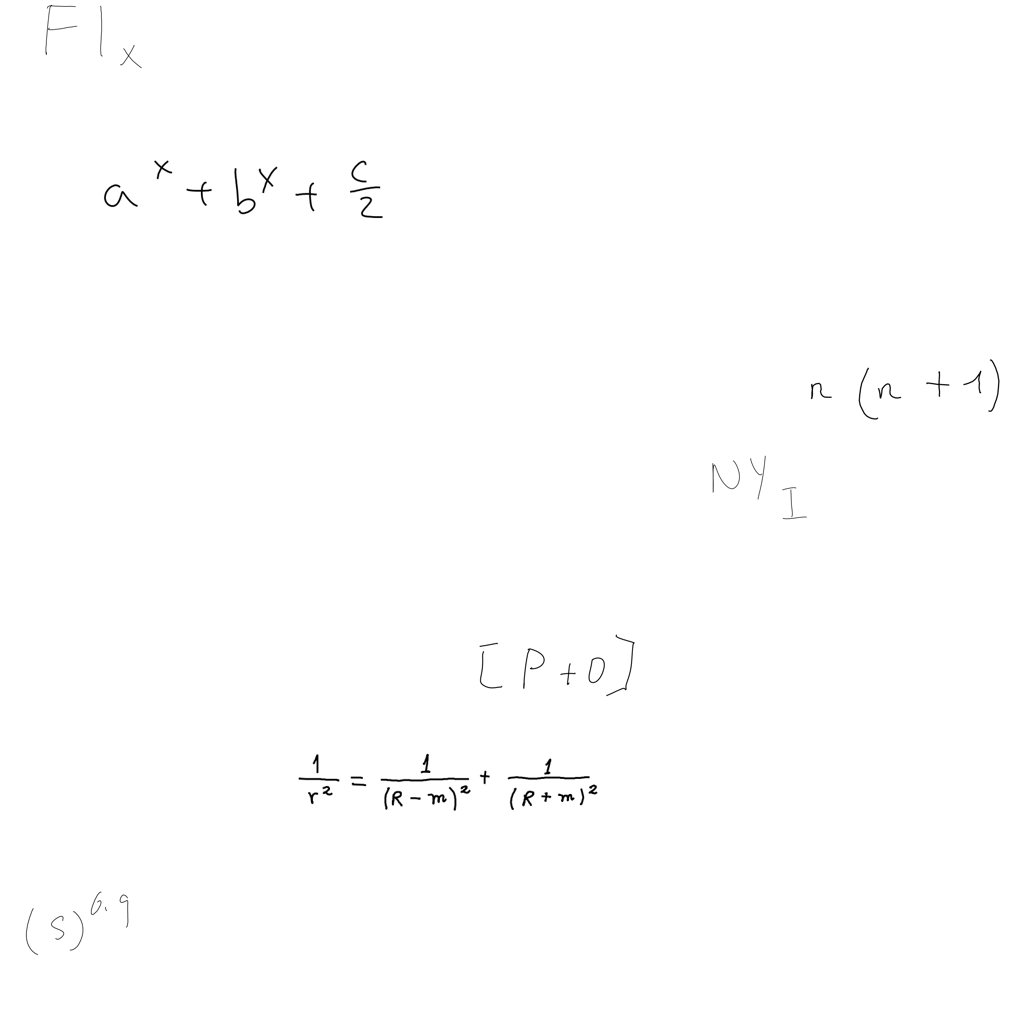 F|ₓ
aˣ + bˣ + c/2
n (n + 1)
NY_I
[P + 0]
1/r² = 1/(R − m)² + 1/(R + m)²
(s)^6.9